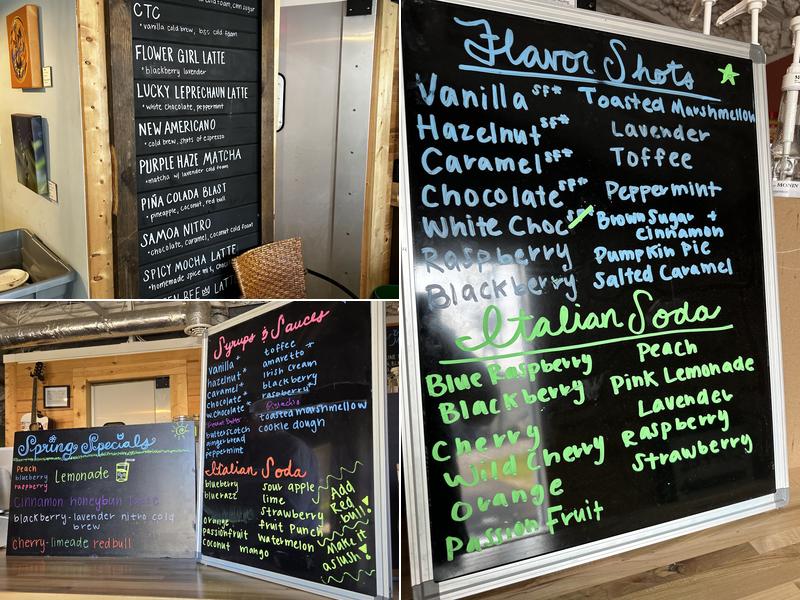 CTC
• vanilla cold brew, bass cold foam
FLOWER GIRL LATTE
• blackberry lavender
LUCKY LEPRECHAUN LATTE
• white chocolate, peppermint
NEW AMERICANO
• cold brew, shots of espresso
PURPLE HAZE MATCHA
• matcha w/ lavender cold foam
PIÑA COLADA BLAST
• pineapple, coconut, red bull
SAMOA NITRO
• chocolate, caramel, coconut cold foam
SPICY MOCHA LATTE
• homemade spice mix,
Flavor Shots
Vanilla SF* Toasted Marshmellow
Hazelnut SF* Lavender
Caramel SF* Toffee
Chocolate SF* Peppermint
White Choc SF Brown Sugar +
cinnamon
Raspberry Pumpkin Pie
Blackberry Salted Caramel
Italian Soda
Blue Raspberry Peach
Blackberry Pink Lemonade
Cherry Lavender
Wild Cherry Raspberry
Orange Strawberry
Passion Fruit
Spring Specials
Peach
blueberry Lemonade
raspberry
cinnamon honeybun
blackberry-lavender nitro cold
brew
cherry-limeade redbull
Syrups & Sauces
vanilla
hazelnut *
caramel *
chocolate *
w.chocolate *
Peanut Butter
butterscotch
gingerbread
peppermint
toffee
amaretto *
Irish cream
blackberry
raspberry
Pistachio
toasted marshmellow
cookie dough
Italian Soda
blueberry
blue razz
orange
passionfruit
coconut
mango
sour apple
lime
strawberry
fruit punch
watermelon
Add
Red
bull!
Make it
a slush!
MONIN